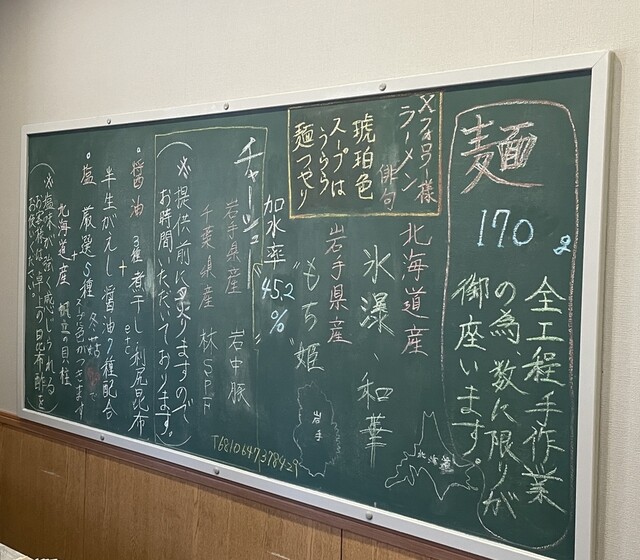 麺
170g
全工程手作業
の為、数に限りが
御座います。
Xフォロワー様
ラーメン俳句
琥珀色
スープはうららら
麺つやり
北海道産
氷瀑、和華
北海道
岩手県産
"もち姫"
岩手
加水率
45.2
%
チャーシュー
岩手県産 岩中豚
千葉県産 林SPF
(※提供前に炙りますので
お時間いただいております。)
T6810647378429
。醤油 3種煮干し、利尻昆布etc
+
半生がえし 醤油7種配合
。塩 厳選5種
+
北海道産 帆立の貝柱
(※塩味が強く感じられる
お客様は、卓上の昆布酢を
お使いください。)